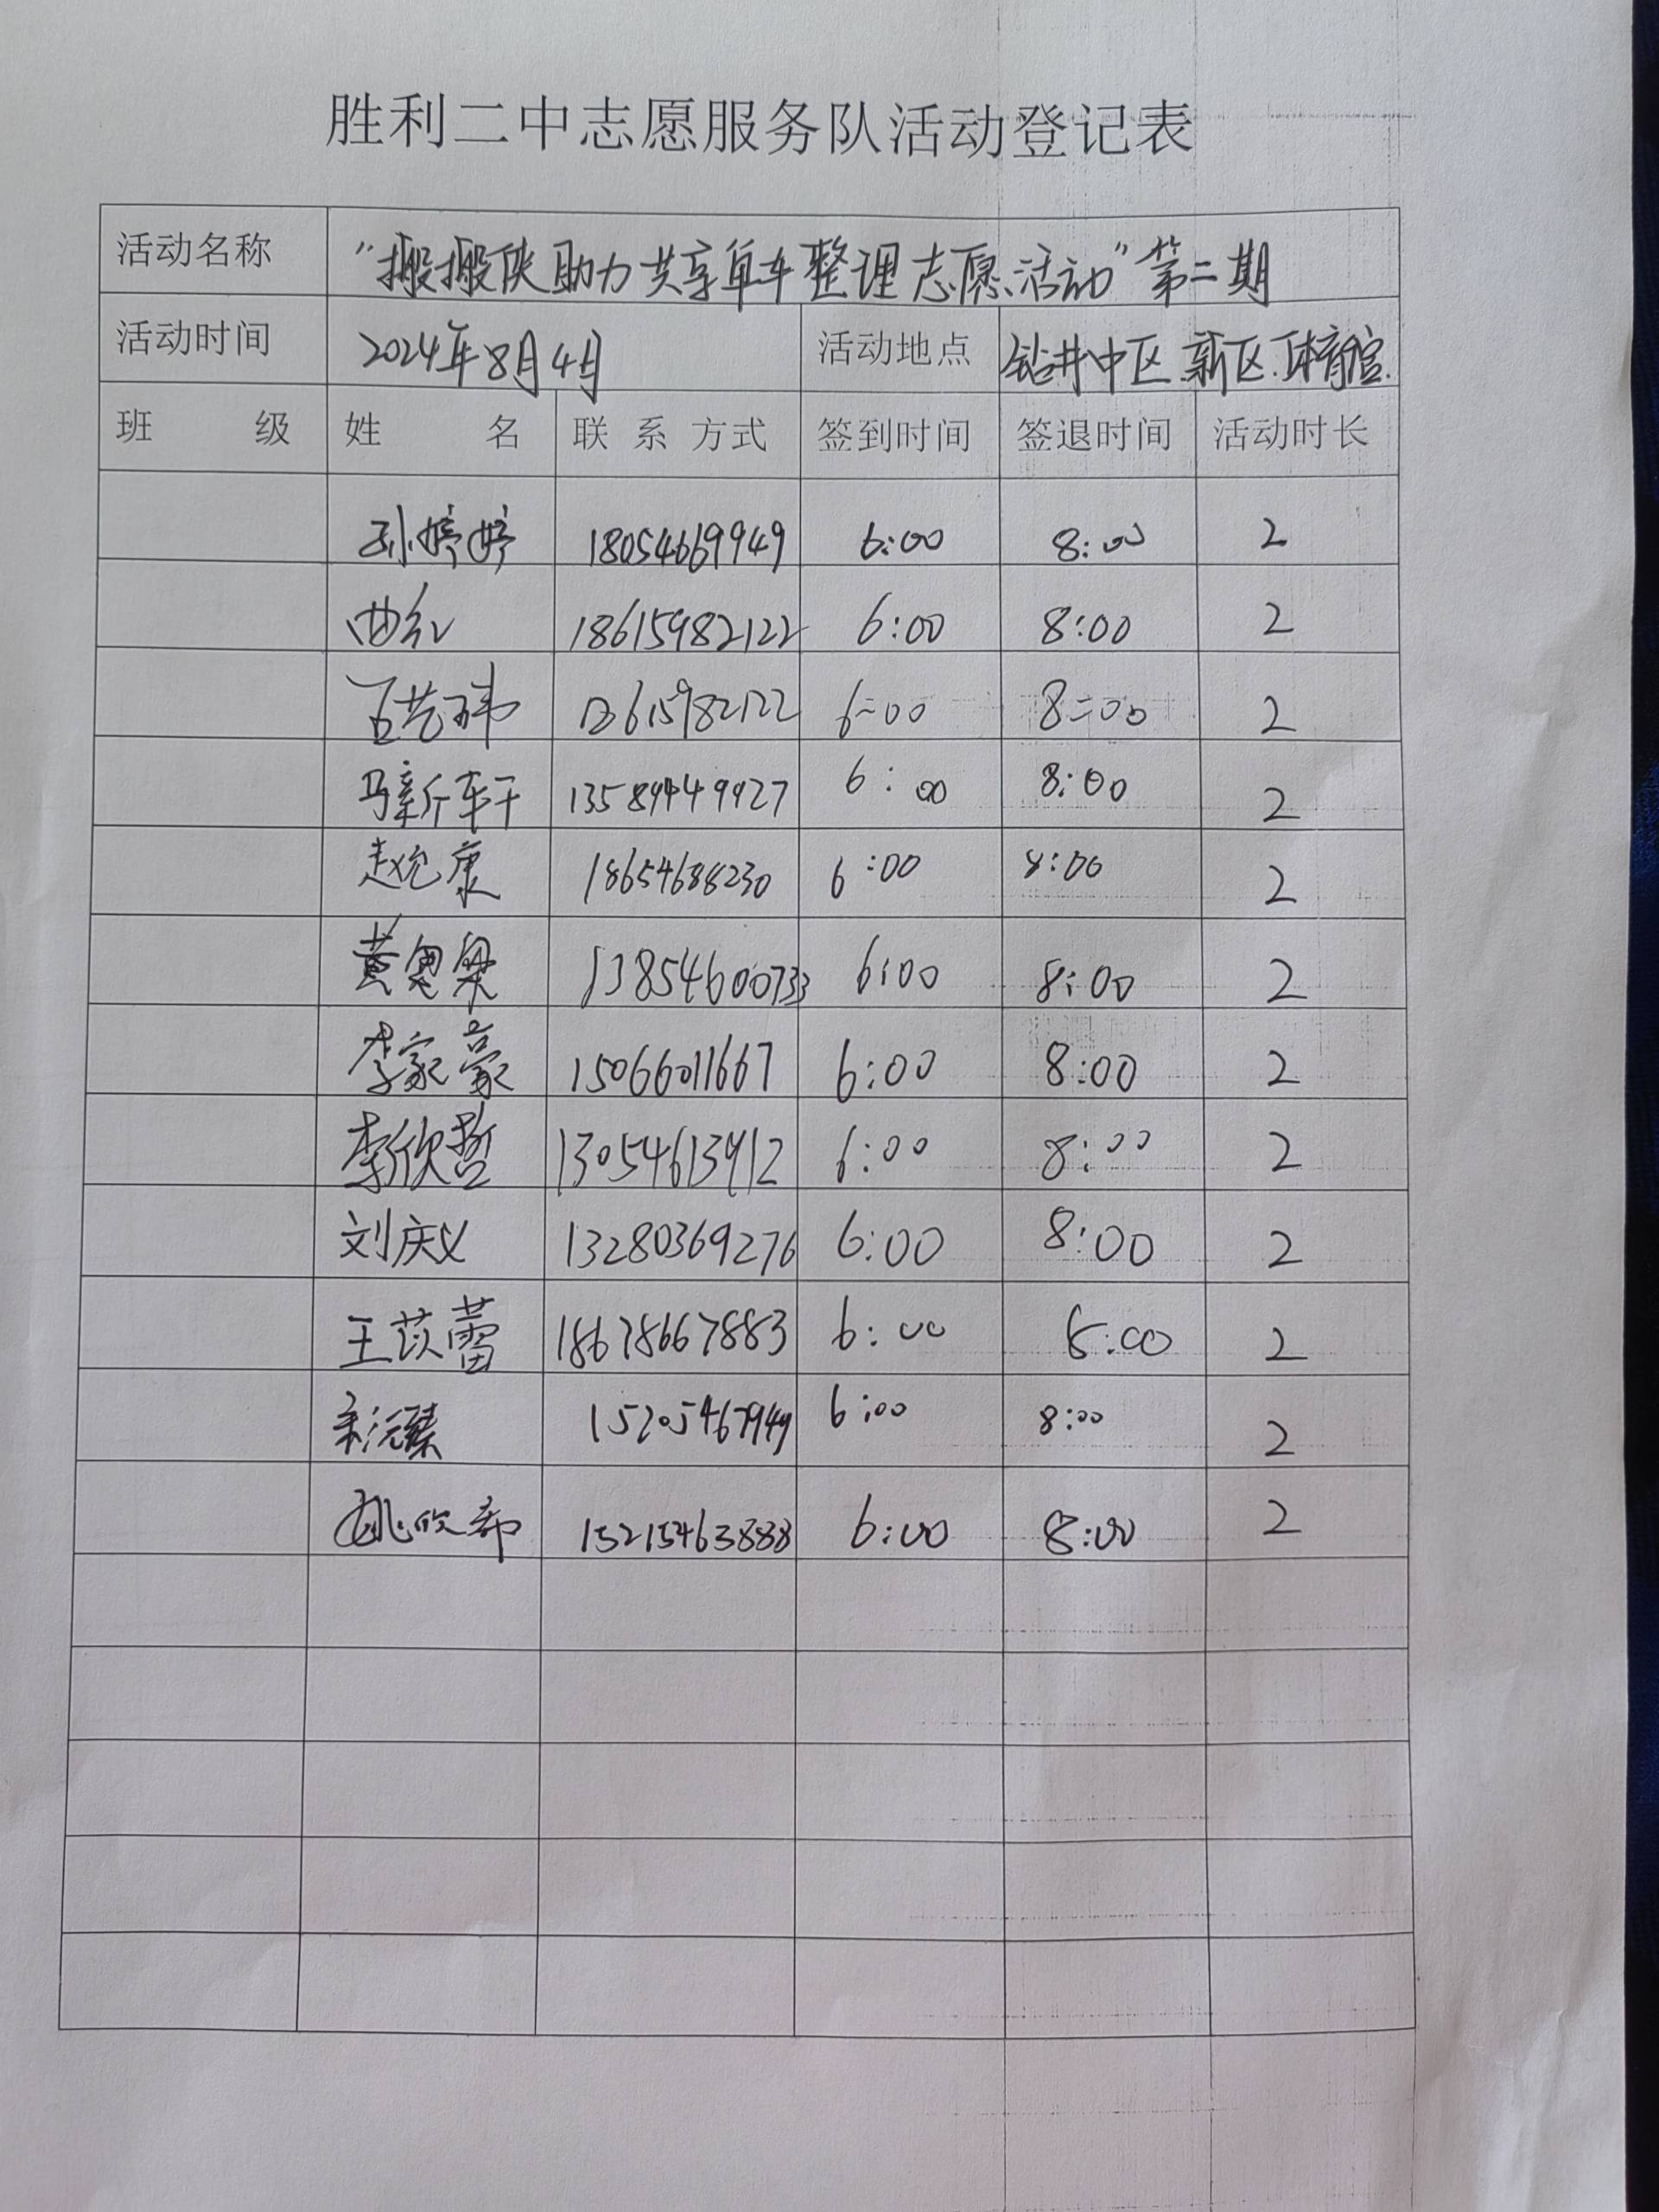 胜利二中志愿服务队活动登记表
活动名称 "搬搬侠助力共享单车整理志愿活动"第二期
活动时间 2024年8月4日 活动地点 钻井中区.新区.体育馆.
班 级 姓 名 联 系 方式 签到时间 签退时间 活动时长
孙婷婷 18054669949 6:00 8:00 2
曲红 18615982122 6:00 8:00 2
18615982122 6:00 8:00 2
马新轩 13589449927 6:00 8:00 2
康 18654688230 6:00 8:00 2
黄 13854600733 6:00 8:00 2
李家豪 15066011667 6:00 8:00 2
李欣哲 13054613912 6:00 8:00 2
刘庆义 13280369276 6:00 8:00 2
王苡蕾 18678667883 6:00 8:00 2
15205467949 6:00 8:00 2
15215463888 6:00 8:00 2